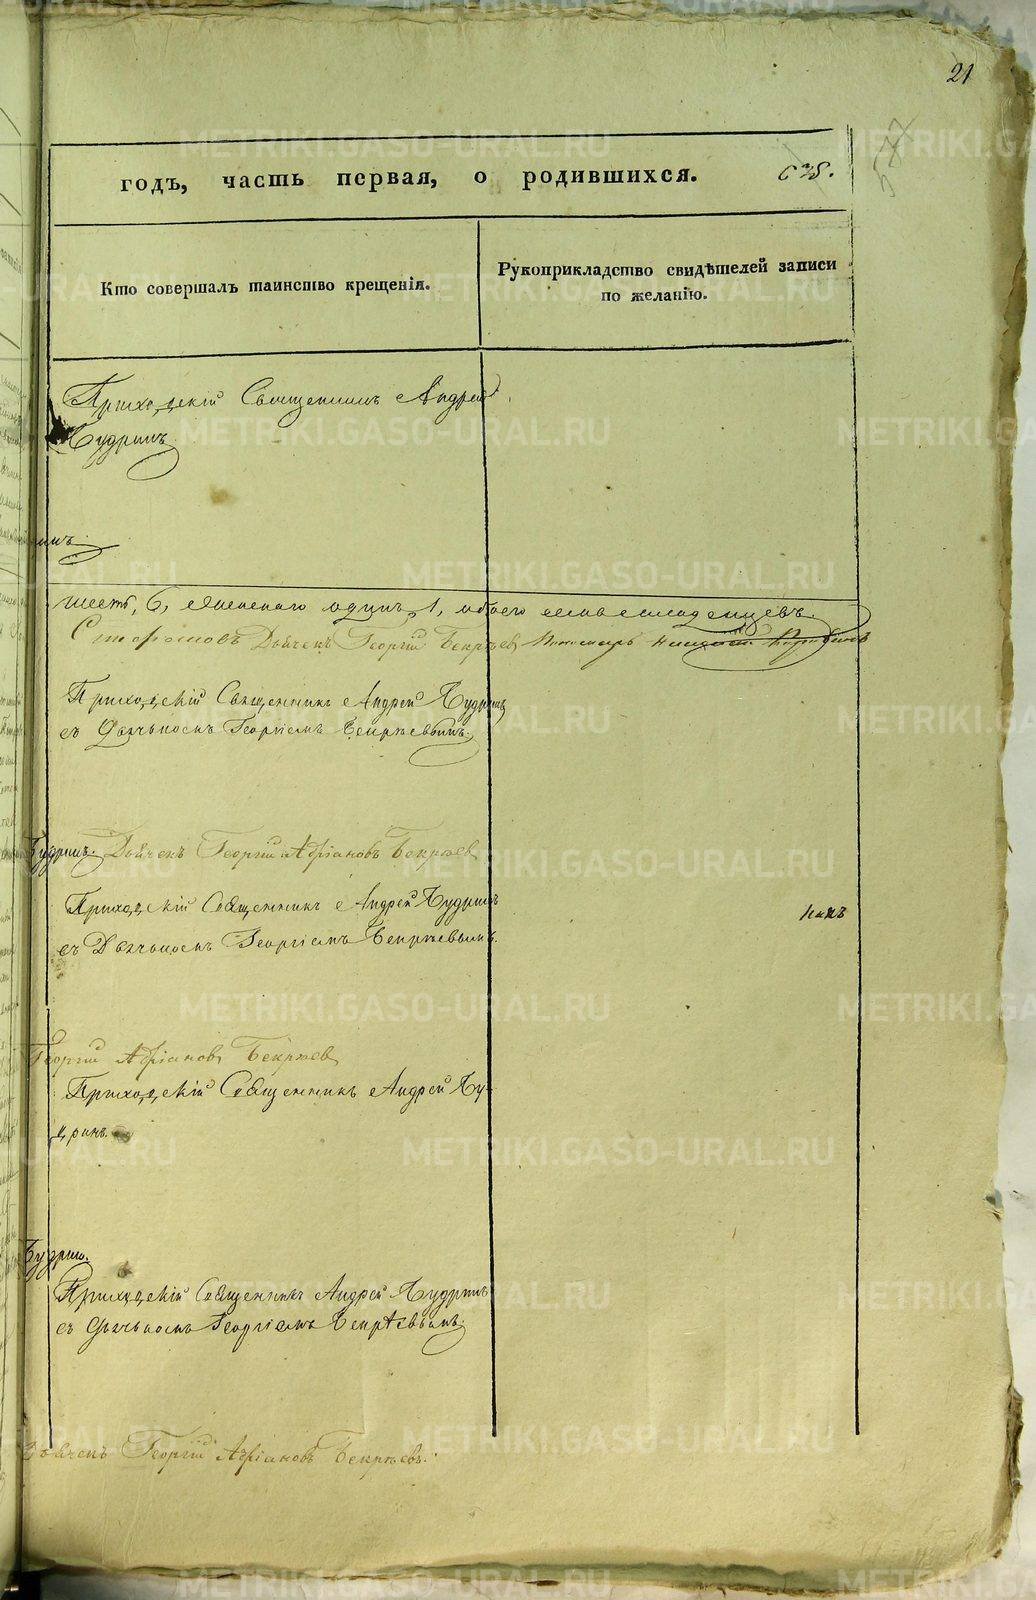 21
годъ, часть первая, о родившихся. 638.
577
Кто совершалъ таинство крещенія.
Рукоприкладство свидѣтелей записи
по желанію.
Приходскій Священникъ Андрей
Будринъ
шесть, 6, женскаго одинъ, 1, обоего семь младенцевъ.
Стефановъ Дьячекъ Георгій Бекрѣев Пономарь
Приходскій Священникъ Андрей Будринъ
съ Дьячькомъ Георгіемъ Бекрѣевымъ.
Будринъ. Дьячекъ Георгій Афіановъ Бекрѣев
Приходскій Священникъ Андрей Будринъ
съ Дьячькомъ Георгіемъ Бекрѣевымъ.
Георгій Афіановъ Бекрѣев
Приходскій Священникъ Андрей Бу-
дринъ.
Будрин.
Приходскій Священникъ Андрей Будринъ
съ Дьячькомъ Георгіемъ Бекрѣевымъ.
Дьячекъ Георгій Афіановъ Бекрѣевъ.
METRIKI.GASO-URAL.RU